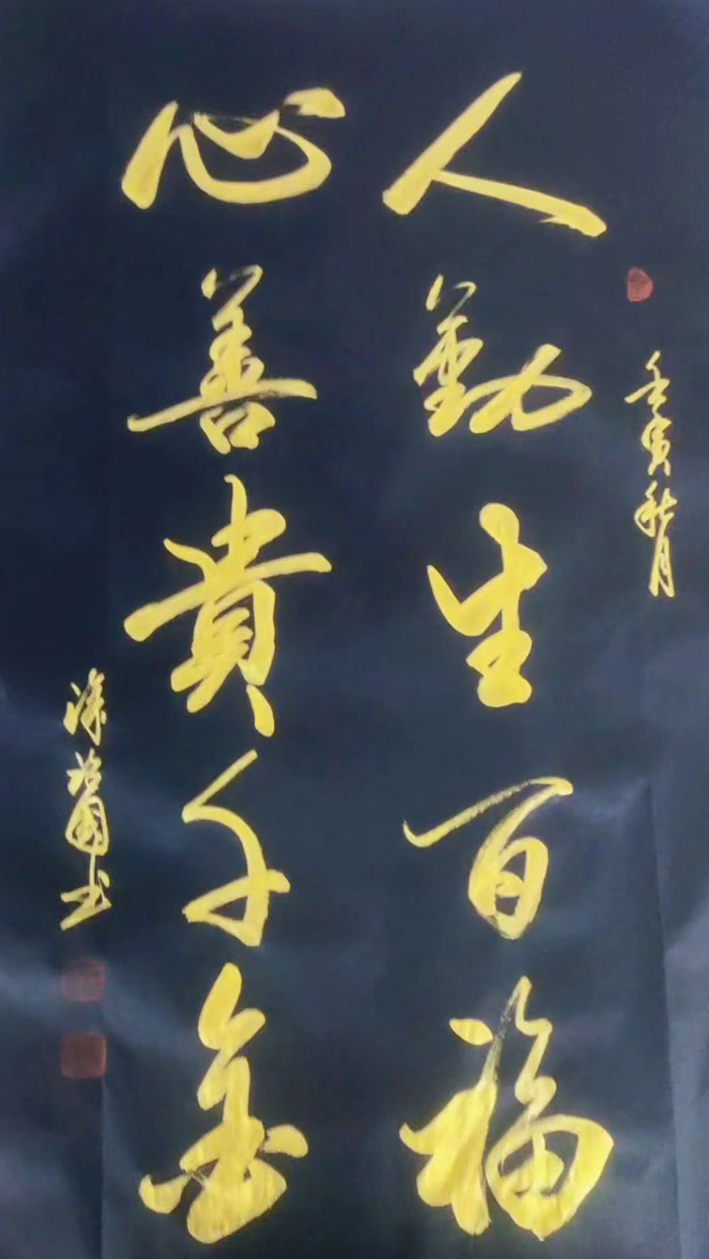 壬寅秋月
人勤生百福
心善貴千金